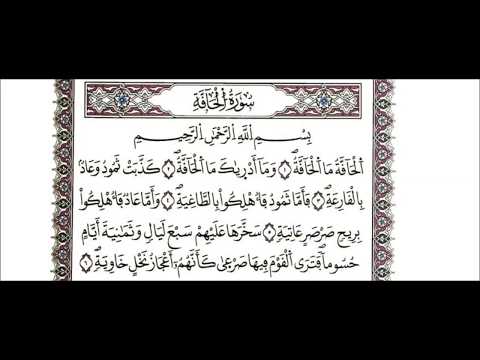 سُورَةُ الْحَاقَّةِ
بِسْمِ اللَّهِ الرَّحْمَٰنِ الرَّحِيمِ
الْحَاقَّةُ مَا الْحَاقَّةُۖ ١ وَمَا أَدْرِيكَ مَا الْحَاقَّةُۖ ٢ كَذَّبَتْ ثَمُودُ وَعَادُۢ
بِالْقَارِعَةِۖ ٣ فَأَمَّا ثَمُودُ فَأُهْلِكُواْ بِالطَّاغِيَةِۖ ٤ وَأَمَّا عَادٌ فَأُهْلِكُواْ
بِرِيحٍ صَرْصَرٍ عَاتِيَةٍۖ ٥ سَخَّرَهَا عَلَيْهِمْ سَبْعَ لَيَالٍ وَثَمَٰنِيَةَ أَيَّامٍ
حُسُوماٗ فَتَرَى الْقَوْمَ فِيهَا صَرْعَىٰ كَأَنَّهُمُۥٓ أَعْجَازُ نَخْلٍ خَاوِيَةٖۖ ٦